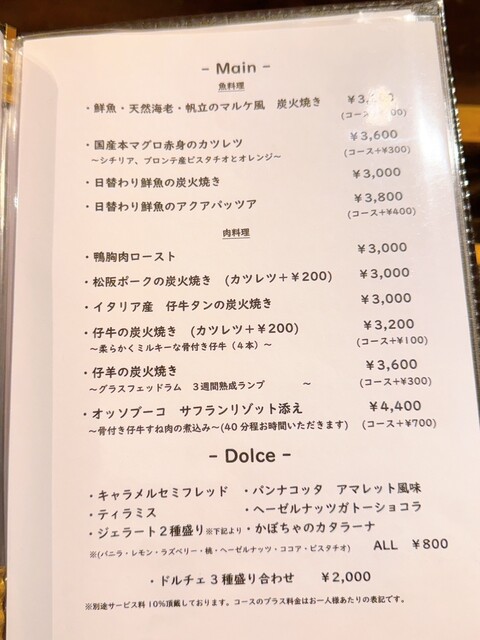 – Main –
魚料理
・鮮魚・天然海老・帆立のマルケ風　炭火焼き　￥3,
(コース+ 00)
・国産本マグロ赤身のカツレツ　￥3,600
～シチリア、ブロンテ産ピスタチオとオレンジ～　(コース+¥300)
・日替わり鮮魚の炭火焼き　￥3,000
・日替わり鮮魚のアクアパッツア　￥3,800
(コース+¥400)
肉料理
・鴨胸肉ロースト　￥3,000
・松阪ポークの炭火焼き　(カツレツ＋￥200)　￥3,000
・イタリア産　仔牛タンの炭火焼き　￥3,000
・仔牛の炭火焼き　(カツレツ＋￥200)　￥3,200
～柔らかくミルキーな骨付き仔牛（４本）～　(コース+¥100)
・仔羊の炭火焼き　￥3,600
～グラスフェッドラム　３週間熟成ランプ　～　(コース+¥300)
・オッソブーコ　サフランリゾット添え　￥4,400
～骨付き仔牛すね肉の煮込み～(40分程お時間いただきます)　(コース+¥700)
– Dolce –
・キャラメルセミフレッド　・パンナコッタ　アマレット風味
・ティラミス　・ヘーゼルナッツガトーショコラ
・ジェラート２種盛り※下記より・かぼちゃのカタラーナ
※(バニラ・レモン・ラズベリー・桃・ヘーゼルナッツ・ココア・ピスタチオ)　ALL　¥800
・ドルチェ３種盛り合わせ　￥2,000
※別途サービス料10%頂戴しております。コースのプラス料金はお一人様あたりの表記です。